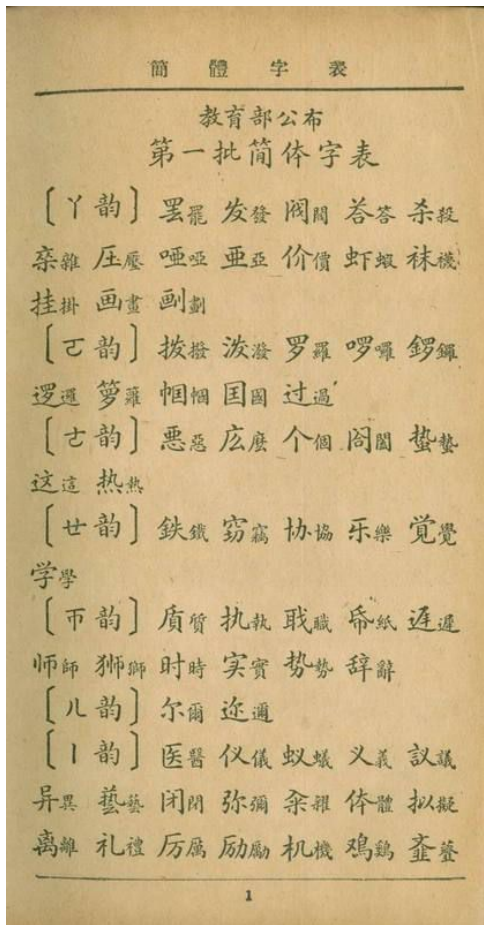 簡體字表
教育部公布
第一批简体字表
〔ㄚ韵〕罢罷 发發 阀閥 荅答 杀殺
杂雜 压壓 唖啞 亜亞 价價 虾蝦 袜襪
挂掛 画畫 劃
〔ㄛ韵〕拨撥 泼潑 罗羅 啰囉 鑼
逻邏 箩籮 帼幗 囯國 过過
〔ㄜ韵〕悪惡 庅麼 个個 阁閣 蛰蟄
这這 热熱
〔ㄝ韵〕鉄鐵 窃竊 协協 乐樂 覚覺
学學
〔ㄭ韵〕质質 执執 职職 帋紙 迟遲
师師 狮獅 时時 实實 势勢 辞辭
〔ㄦ韵〕尔爾 迩邇
〔ㄧ韵〕医醫 仪儀 蚁蟻 义義 议議
异異 藝 闭閉 弥彌 体體 拟擬
离離 礼禮 厉厲 励勵 机機 鸡鷄
1